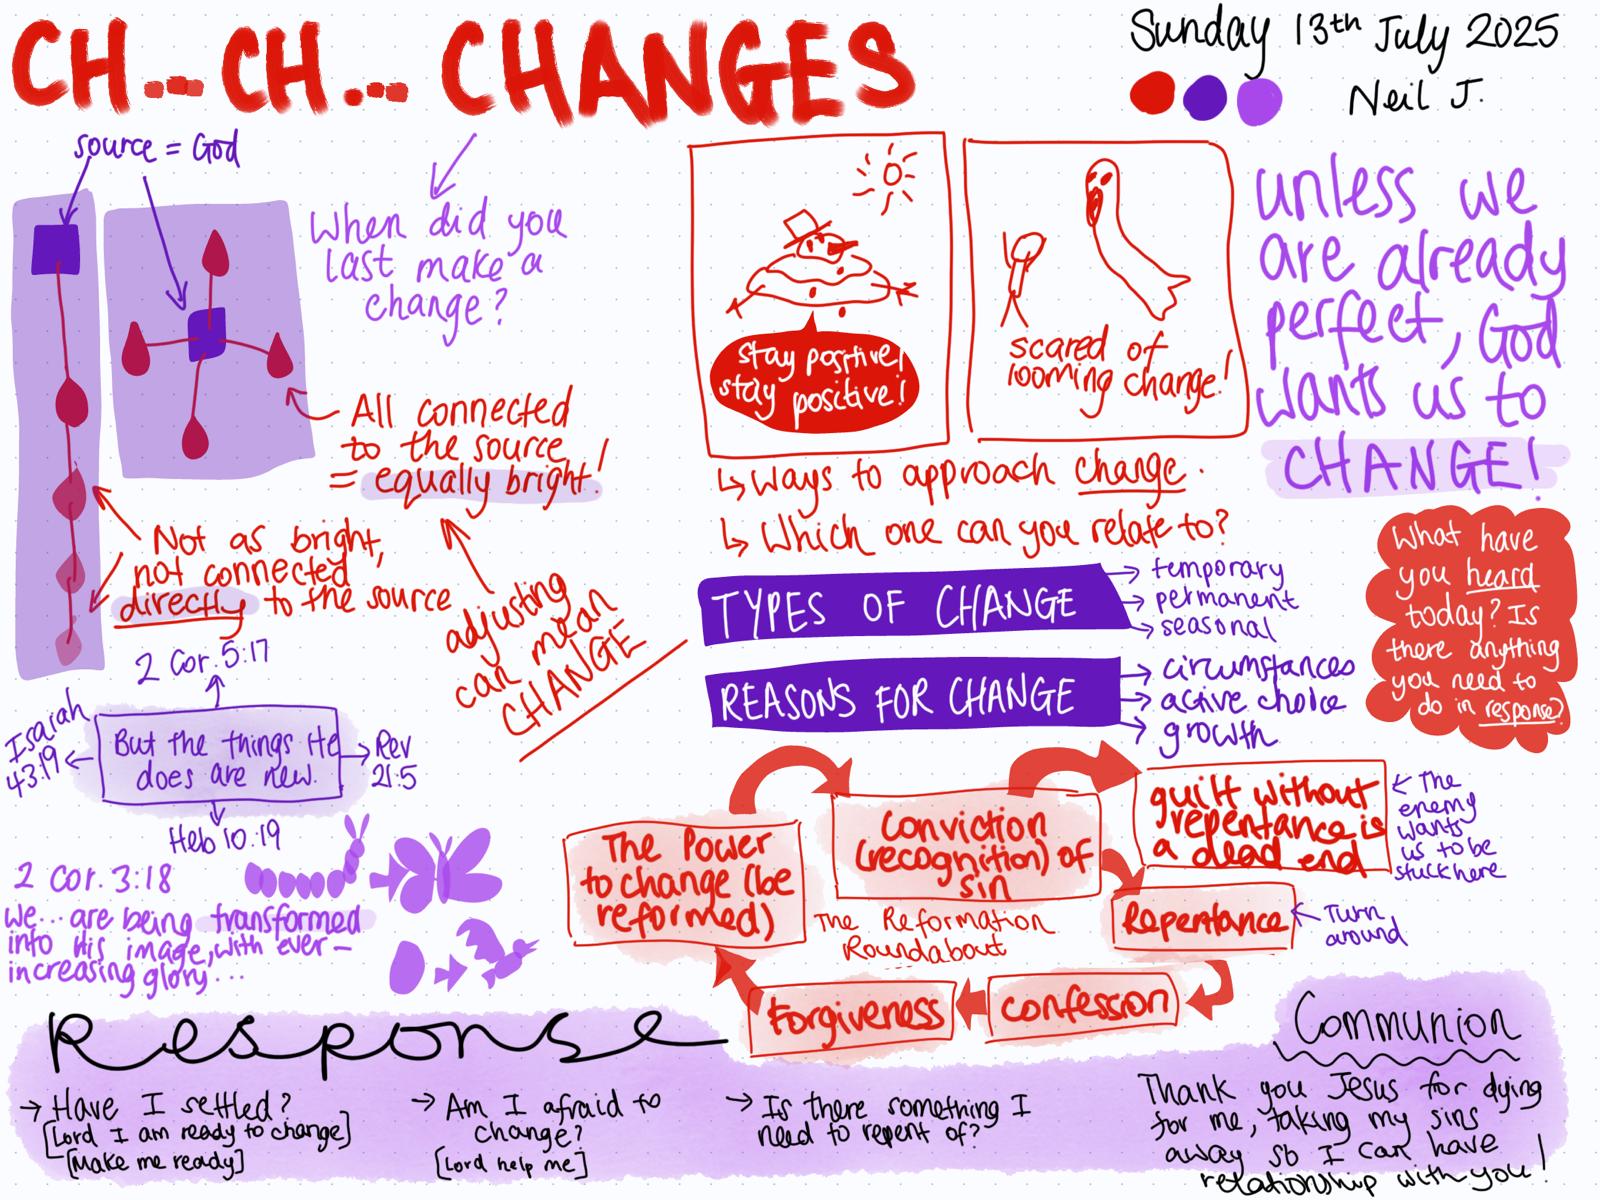 CH... CH... CHANGES
Sunday 13th July 2025
Neil J.
source = God
When did you
last make a
change?
All connected
to the source
= equally bright!
Not as bright,
not connected
directly to the source
adjusting
can mean
CHANGE
stay positive!
stay positive!
scared of
looming change!
↳ Ways to approach change.
↳ Which one can you relate to?
unless we
are already
perfect, God
wants us to
CHANGE!
TYPES OF CHANGE
→ temporary
→ permanent
→ seasonal
REASONS FOR CHANGE
→ circumstances
→ active choice
→ growth
What have
you heard
today? Is
there anything
you need to
do in response?
2 Cor. 5:17
Isaiah
43:19
But the things He
does are new.
Rev
21:5
Heb 10:19
2 Cor. 3:18
We... are being transformed
into His image, with ever-
increasing glory...
The Power
to change (be
reformed)
Conviction
(recognition) of
sin
guilt without
repentance is
a dead end
← The
enemy
wants
us to be
stuck here
The Reformation
Roundabout
Repentance
← Turn
around
Confession
Forgiveness
Response
→ Have I settled?
[Lord I am ready to change]
[Make me ready]
→ Am I afraid to
change?
[Lord help me]
→ Is there something I
need to repent of?
Communion
Thank you Jesus for dying
for me, taking my sins
away so I can have
relationship with you!